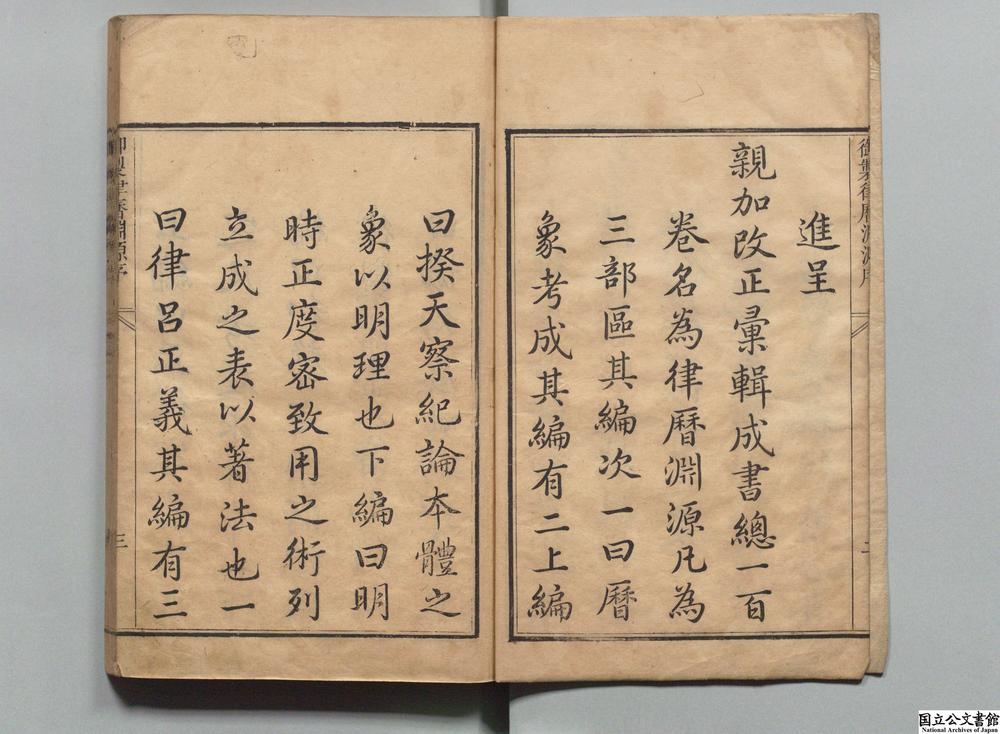 御製律曆淵源序
進呈
親加改正彙輯成書總一百
卷名為律曆淵源凡為
三部區其編次一曰曆
象考成其編有二上編
二
曰揆天察紀論本體之
象以明理也下編曰明
時正度密致用之術列
立成之表以著法也一
曰律呂正義其編有三
御製律曆淵源序
三
国立公文書館
National Archives of Japan